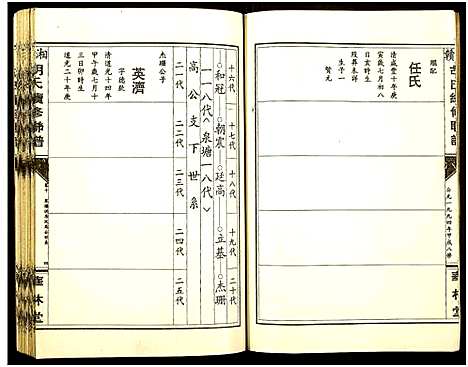 繼配
任氏
清咸豐十年歲
寅歲七月初八
日亥時生
歿葬未詳
生子一
賢元
公元一九九四年甲戌八修
華林堂
十六代 十七代 十八代 十九代 二十代
和冠 朝震 廷高 立基 杰珊
一一八代(泉塘一八代)
高公支下世系
二一代 二二代 二三代 二四代 二五代
杰珊公子
英濟
子德欽
清道光十四年
甲午歲七月十
三日卯時生
道光二十年庚
胡氏續修聯譜
華林堂